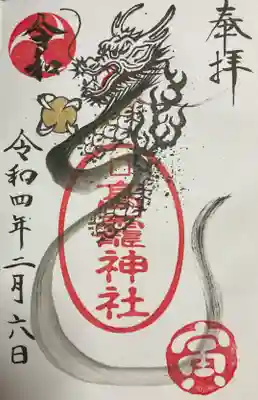 奉拝
龗神社
寅
令和
令和四年二月六日